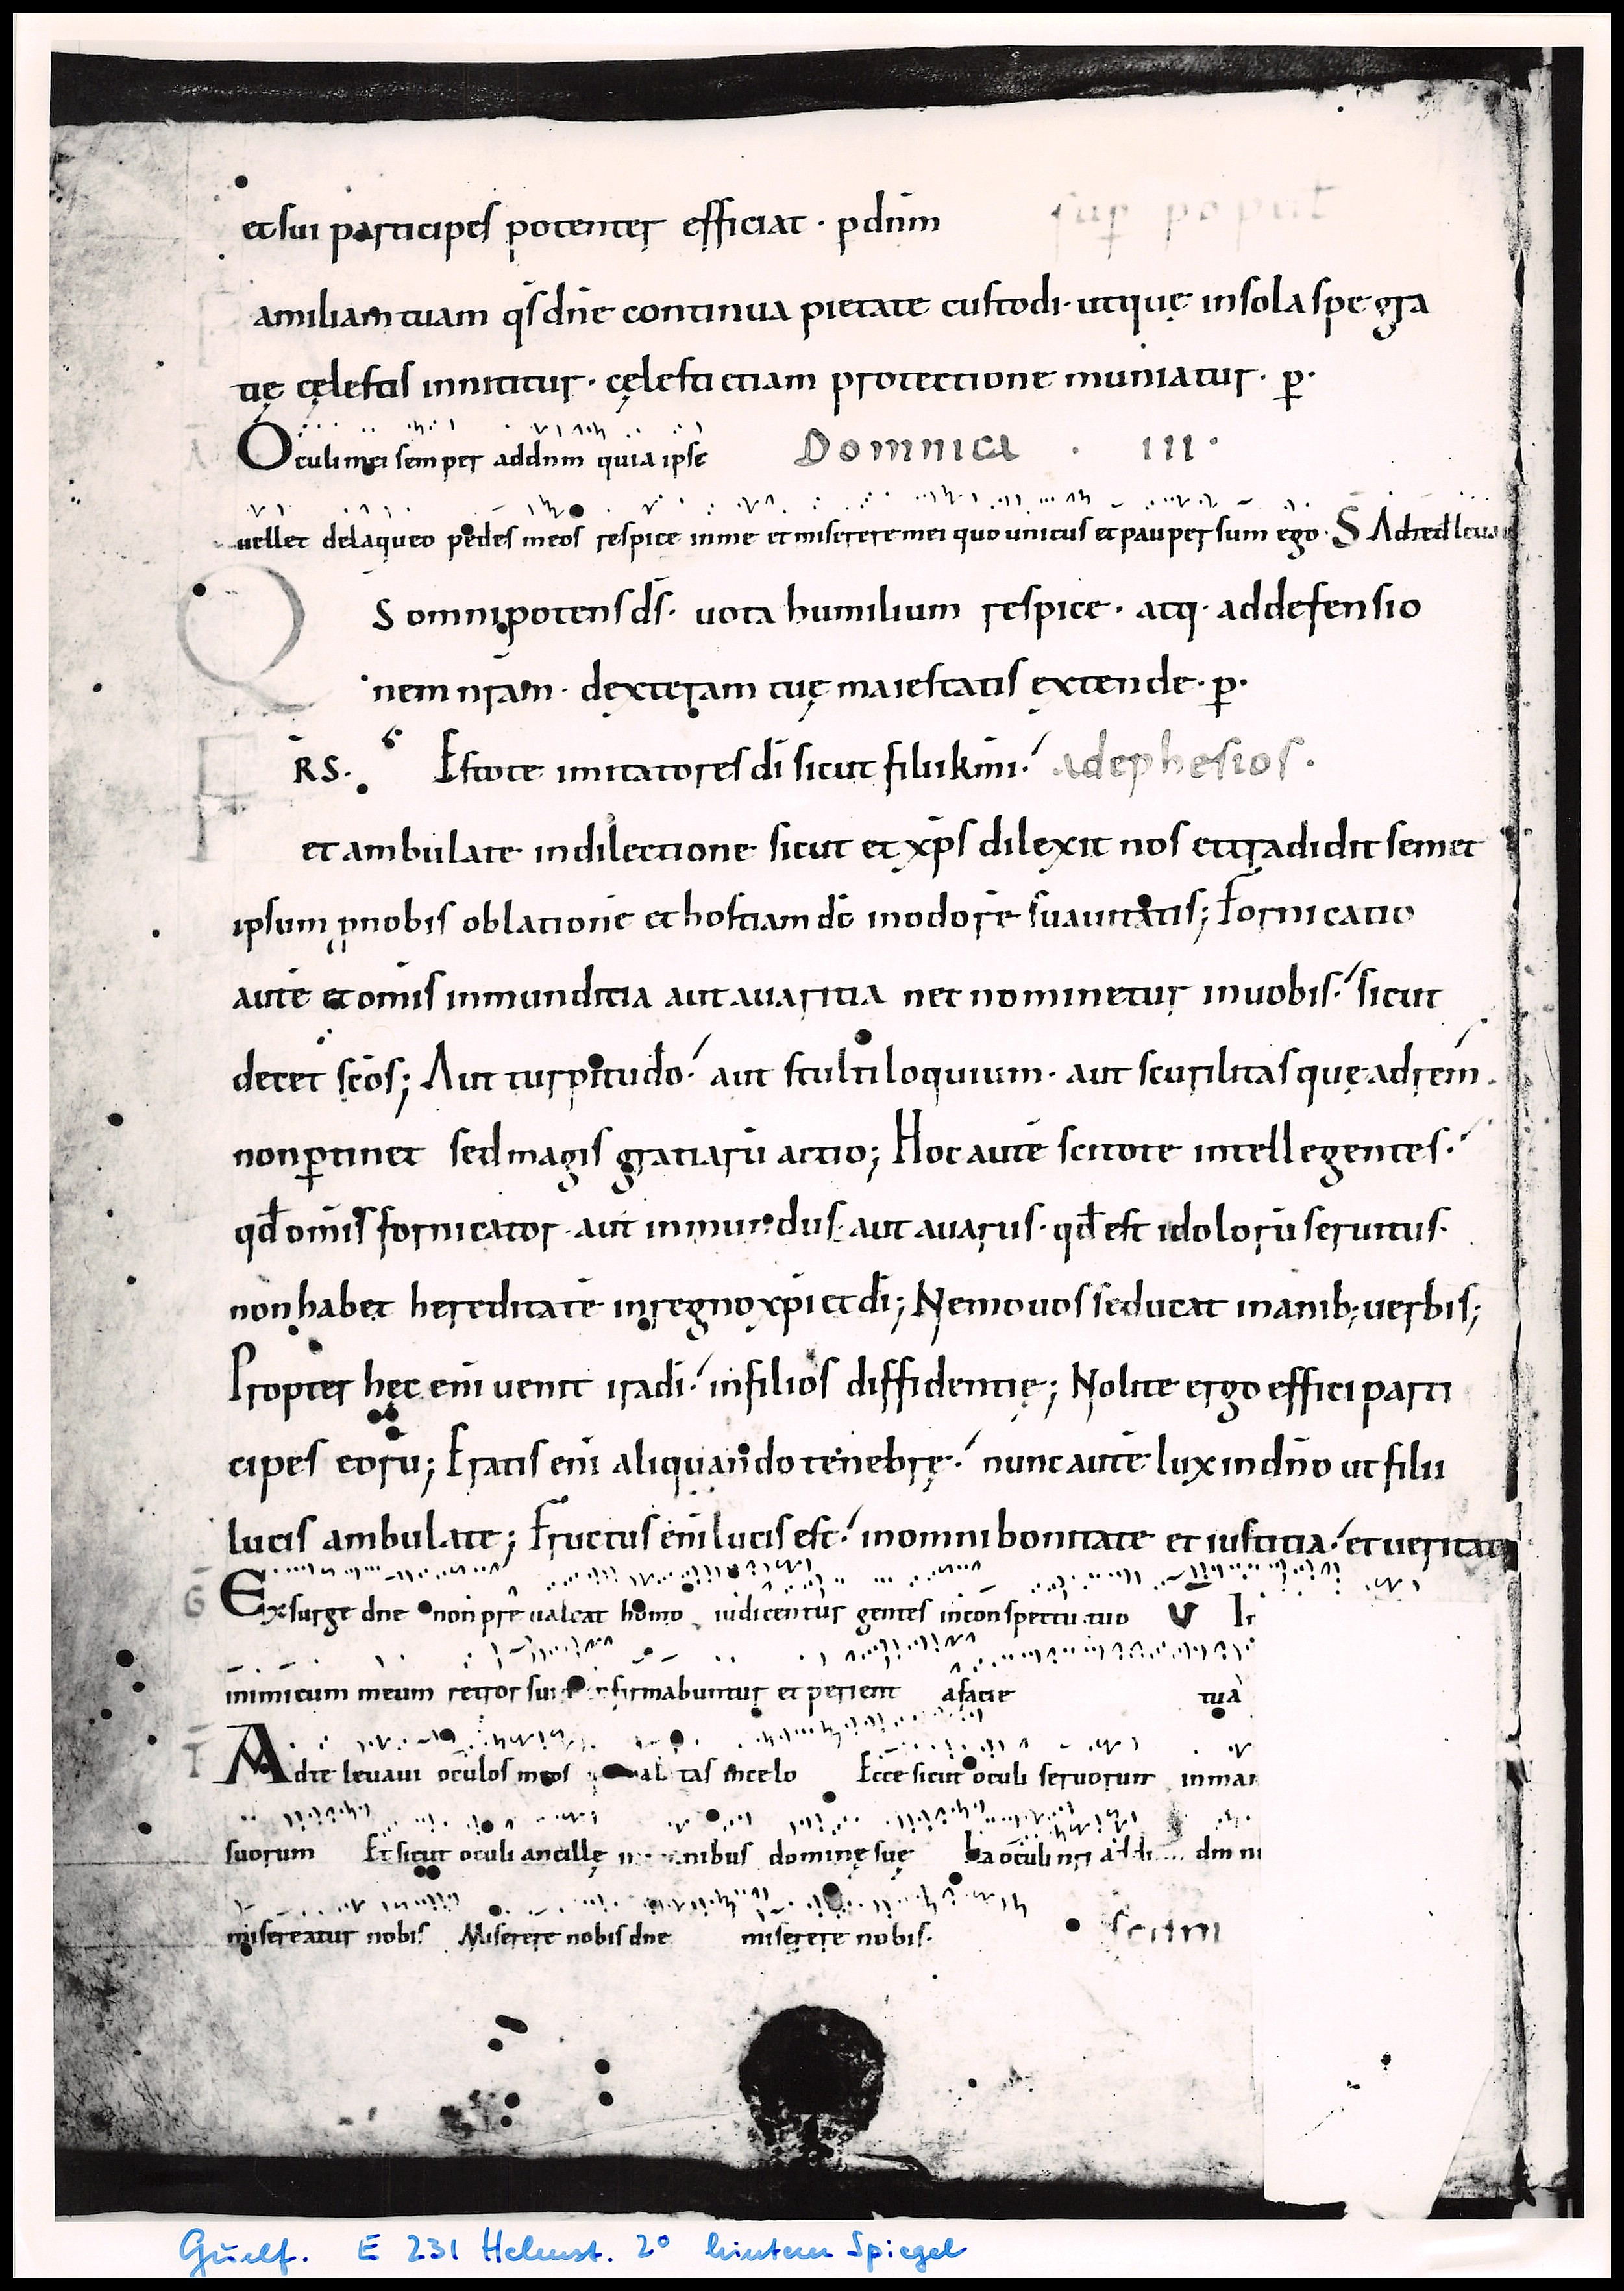 et sui participes potenter efficiat · p dnm̄ sup popul
amiliam tuam qs̄ dn̄e continua pietate custodi · ut quę in sola spe gra
tię cęlestis innititur · cęlesti etiam protectione muniatur · p̱ ·
Oculi mei semper ad dnm̄ quia ipse Domnica · III ·
uellet de laqueo pedes meos respice in me et miserere mei quo unicus et pauper sum ego · S Ad te d̄ leua
Qs omnipotens ds̄ · uota humilium respice · atq · ad defensio
nem nr̄am · dexteram tuę maiestatis extende · p̱ ·
F RS̄ · Estote imitatores dī sicut filii kmī · ad ephesios ·
et ambulate in dilectione sicut et xp̄s dilexit nos et tradidit semet
ipsum p nobis oblationē et hostiam dō in odorē suauitatis; Fornicatio
autē et om̄is inmunditia aut auaritia nec nominetur in uobis · sicut
decet sc̄os; Aut turpitudo · aut stultiloquium · aut scurilitas quę ad rem
non p̱tinet sed magis gratiarū actio; Hoc autē scitote intellegentes ·
qd̄ om̄is fornicator · aut inmundus · aut auarus · qd̄ est idolorū seruitus ·
non habet hereditatē in regno xp̄i et dī; Nemo uos seducat inanib; uerbis;
Propter hęc enī uenit ira dī · in filios diffidentię; Nolite ergo effici parti
cipes eorū; Eratis enī aliquando tenebrę · nunc autē lux in dn̄o ut filii
lucis ambulate; Fructus enī lucis est · in omni bonitate et iustitia · et ueritate
Ḡ Exsurge dn̄e non prę̄ualeat homo iudicentur gentes in conspectu tuo V In
inimicum meum retrorsum infirmabuntur et perient a facie tua
T̄ Ad te leuaui oculos meos habitas in celo Ecce sicut oculi seruorum in man
suorum Et sicut oculi ancillę manibus dominę suę Ita oculi nr̄i ad dm̄
misereatur nobis Miserere nobis dn̄e miserere nobis · scdm
Guelf. E 231 Helmst. 2° hinterer Spiegel